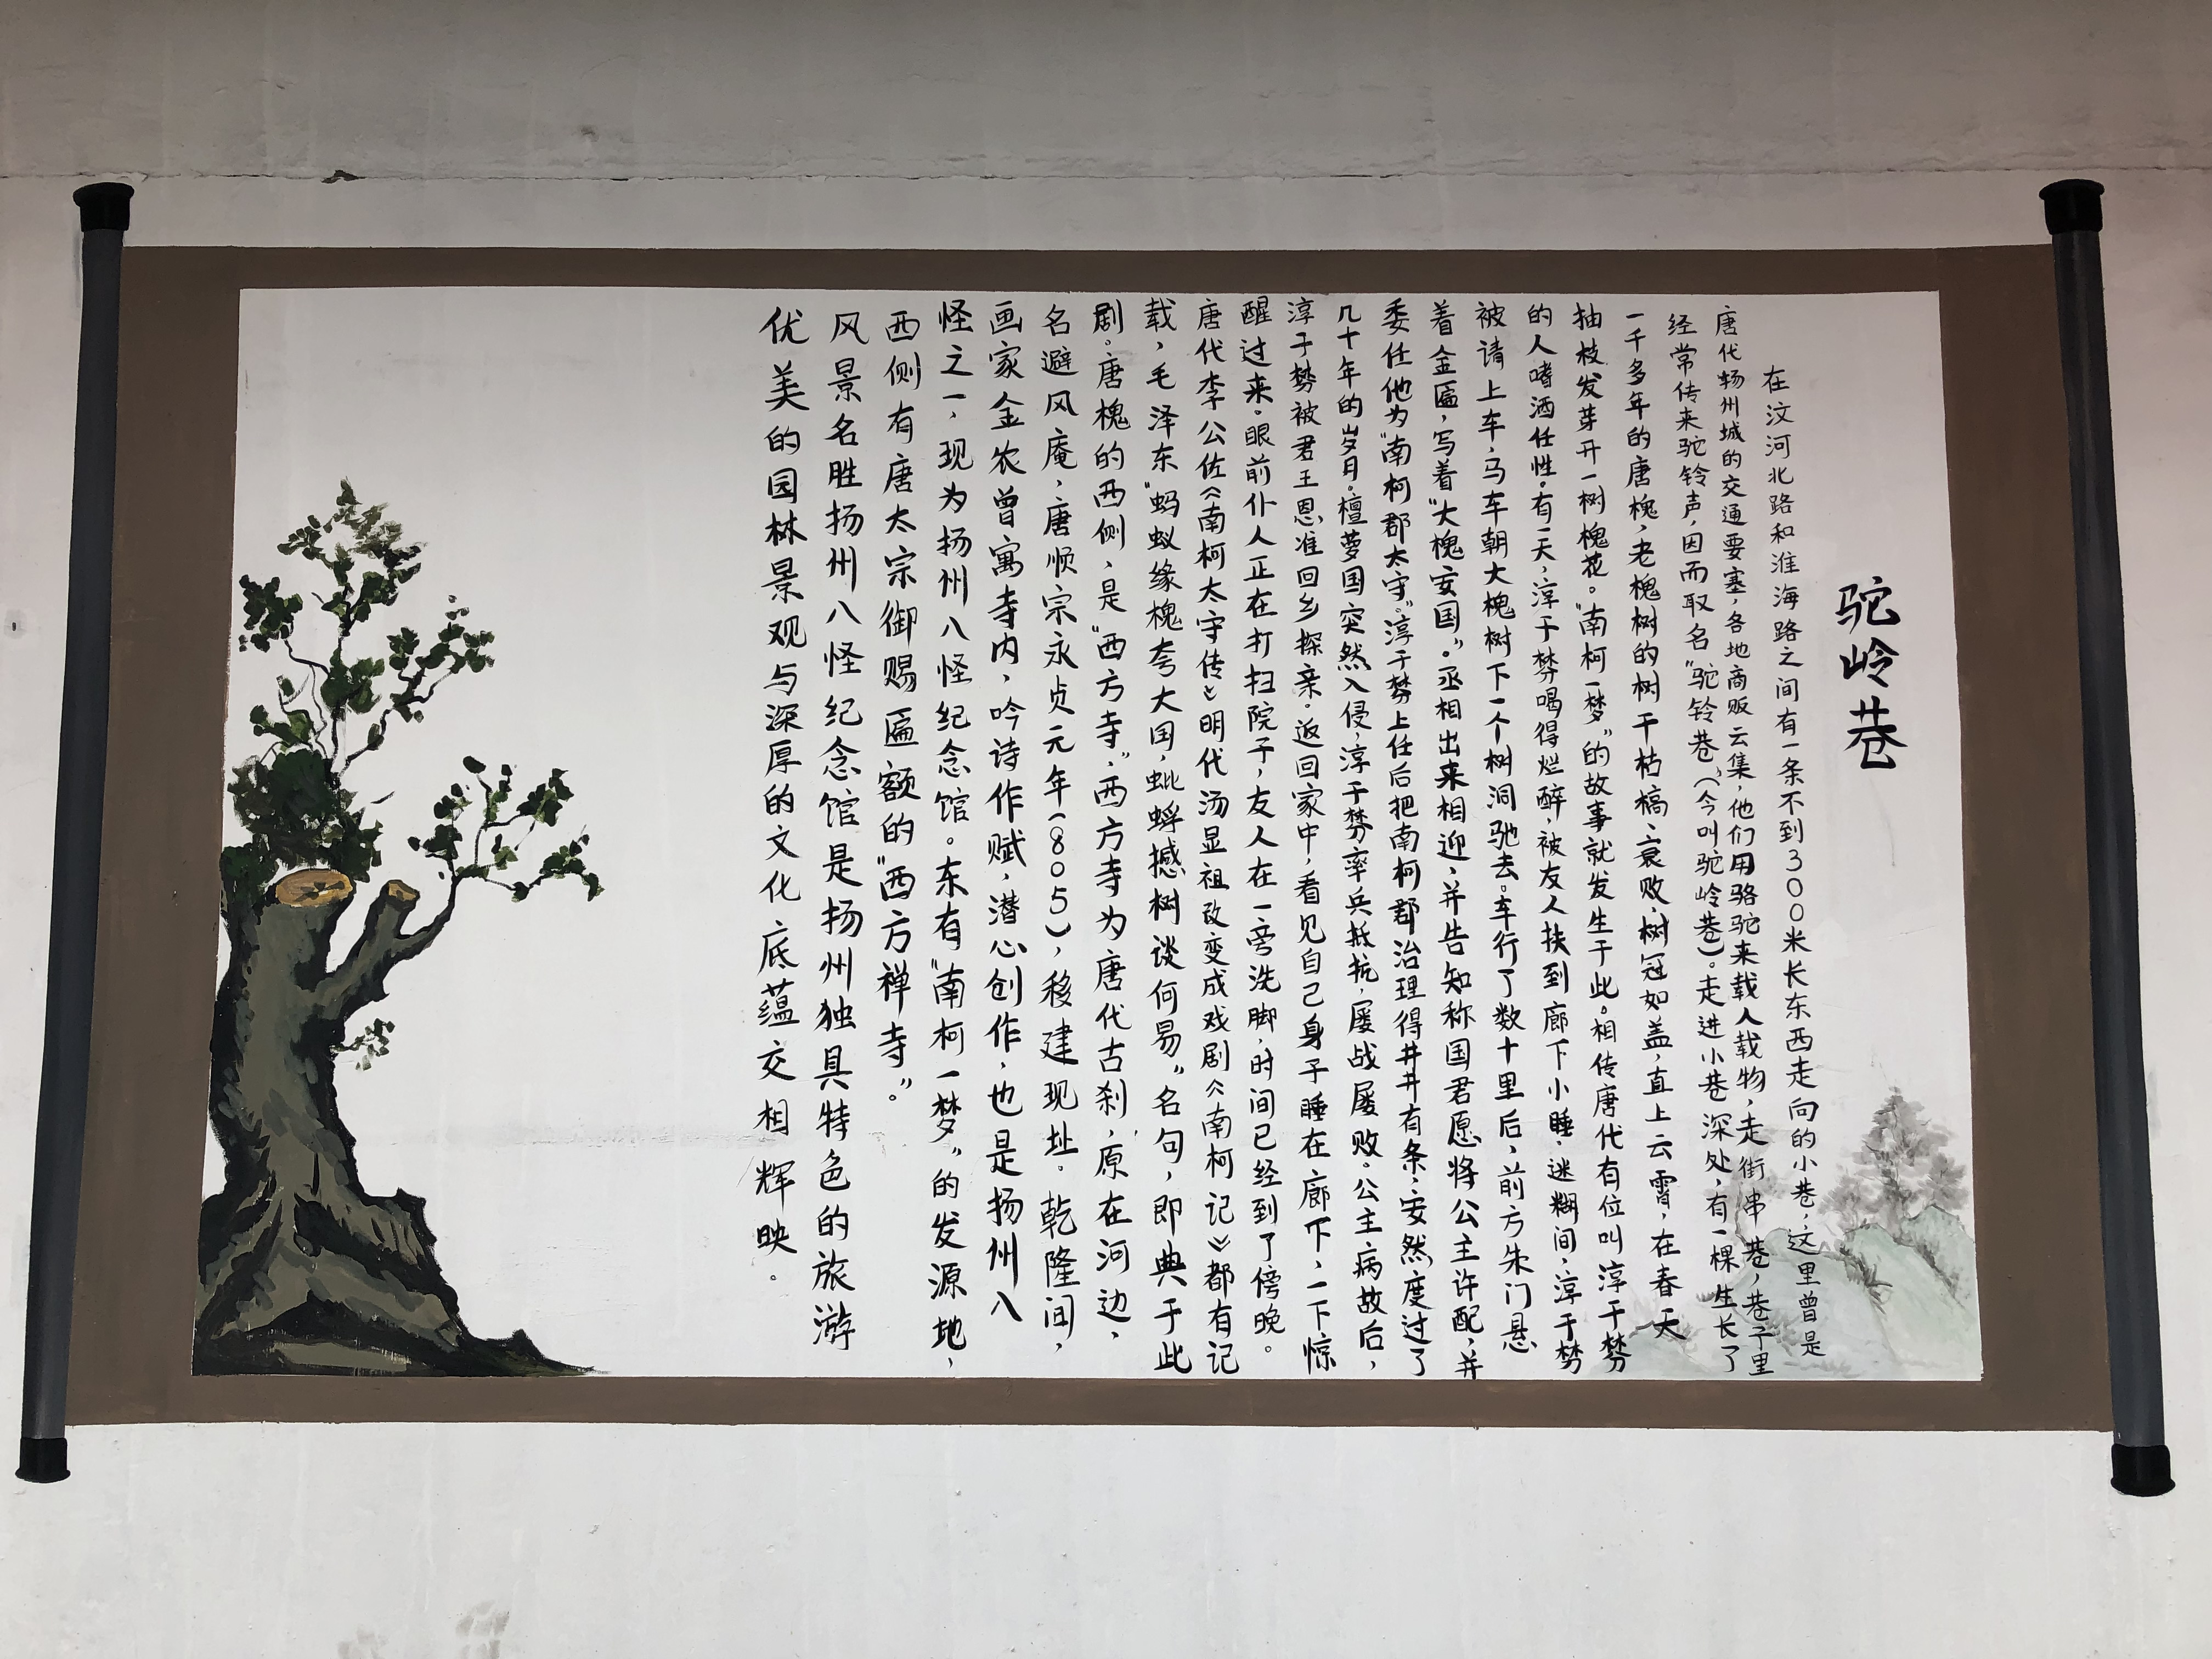 驼岭巷
在汶河北路和淮海路之间有一条不到300米长东西走向的小巷，这里曾是
唐代扬州城的交通要塞，各地商贩云集，他们用骆驼来载人载物，走街串巷，巷子里
经常传来驼铃声，因而取名“驼铃巷”（今叫驼岭巷）。走进小巷深处，有一棵生长了
一千多年的唐槐，老槐树的树干枯槁、衰败，树冠如盖，直上云霄，在春天
抽枝发芽开一树槐花。“南柯一梦”的故事就发生于此。相传唐代有位叫淳于棼
的人嗜酒任性。有一天，淳于棼喝得烂醉，被友人扶到廊下小睡，迷糊间，淳于棼
被请上车，马车朝大槐树下一个树洞驰去。车行了数十里后，前方朱门悬
着金匾，写着“大槐安国”。丞相出来相迎，并告知称国君愿将公主许配，并
委任他为“南柯郡太守”。淳于棼上任后把南柯郡治理得井井有条，安然度过了
几十年的岁月。檀萝国突然入侵，淳于棼率兵抵抗，屡战屡败。公主病故后，
淳于棼被君王恩准回乡探亲。返回家中，看见自己身子睡在廊下，一下惊
醒过来。眼前仆人正在打扫院子，友人在一旁洗脚，时间已经到了傍晚。
唐代李公佐《南柯太守传》明代汤显祖改变成戏剧《南柯记》都有记
载，毛泽东“蚂蚁缘槐夸大国，蚍蜉撼树谈何易”名句，即典于此
剧。唐槐的西侧，是“西方寺”，西方寺为唐代古刹，原在河边，
名避风庵，唐顺宗永贞元年（805），移建现址。乾隆间，
画家金农曾寓寺内，吟诗作赋，潜心创作，也是扬州八
怪之一，现为扬州八怪纪念馆。东有“南柯一梦”的发源地，
西侧有唐太宗御赐匾额的“西方禅寺”。
风景名胜扬州八怪纪念馆是扬州独具特色的旅游
优美的园林景观与深厚的文化底蕴交相辉映。